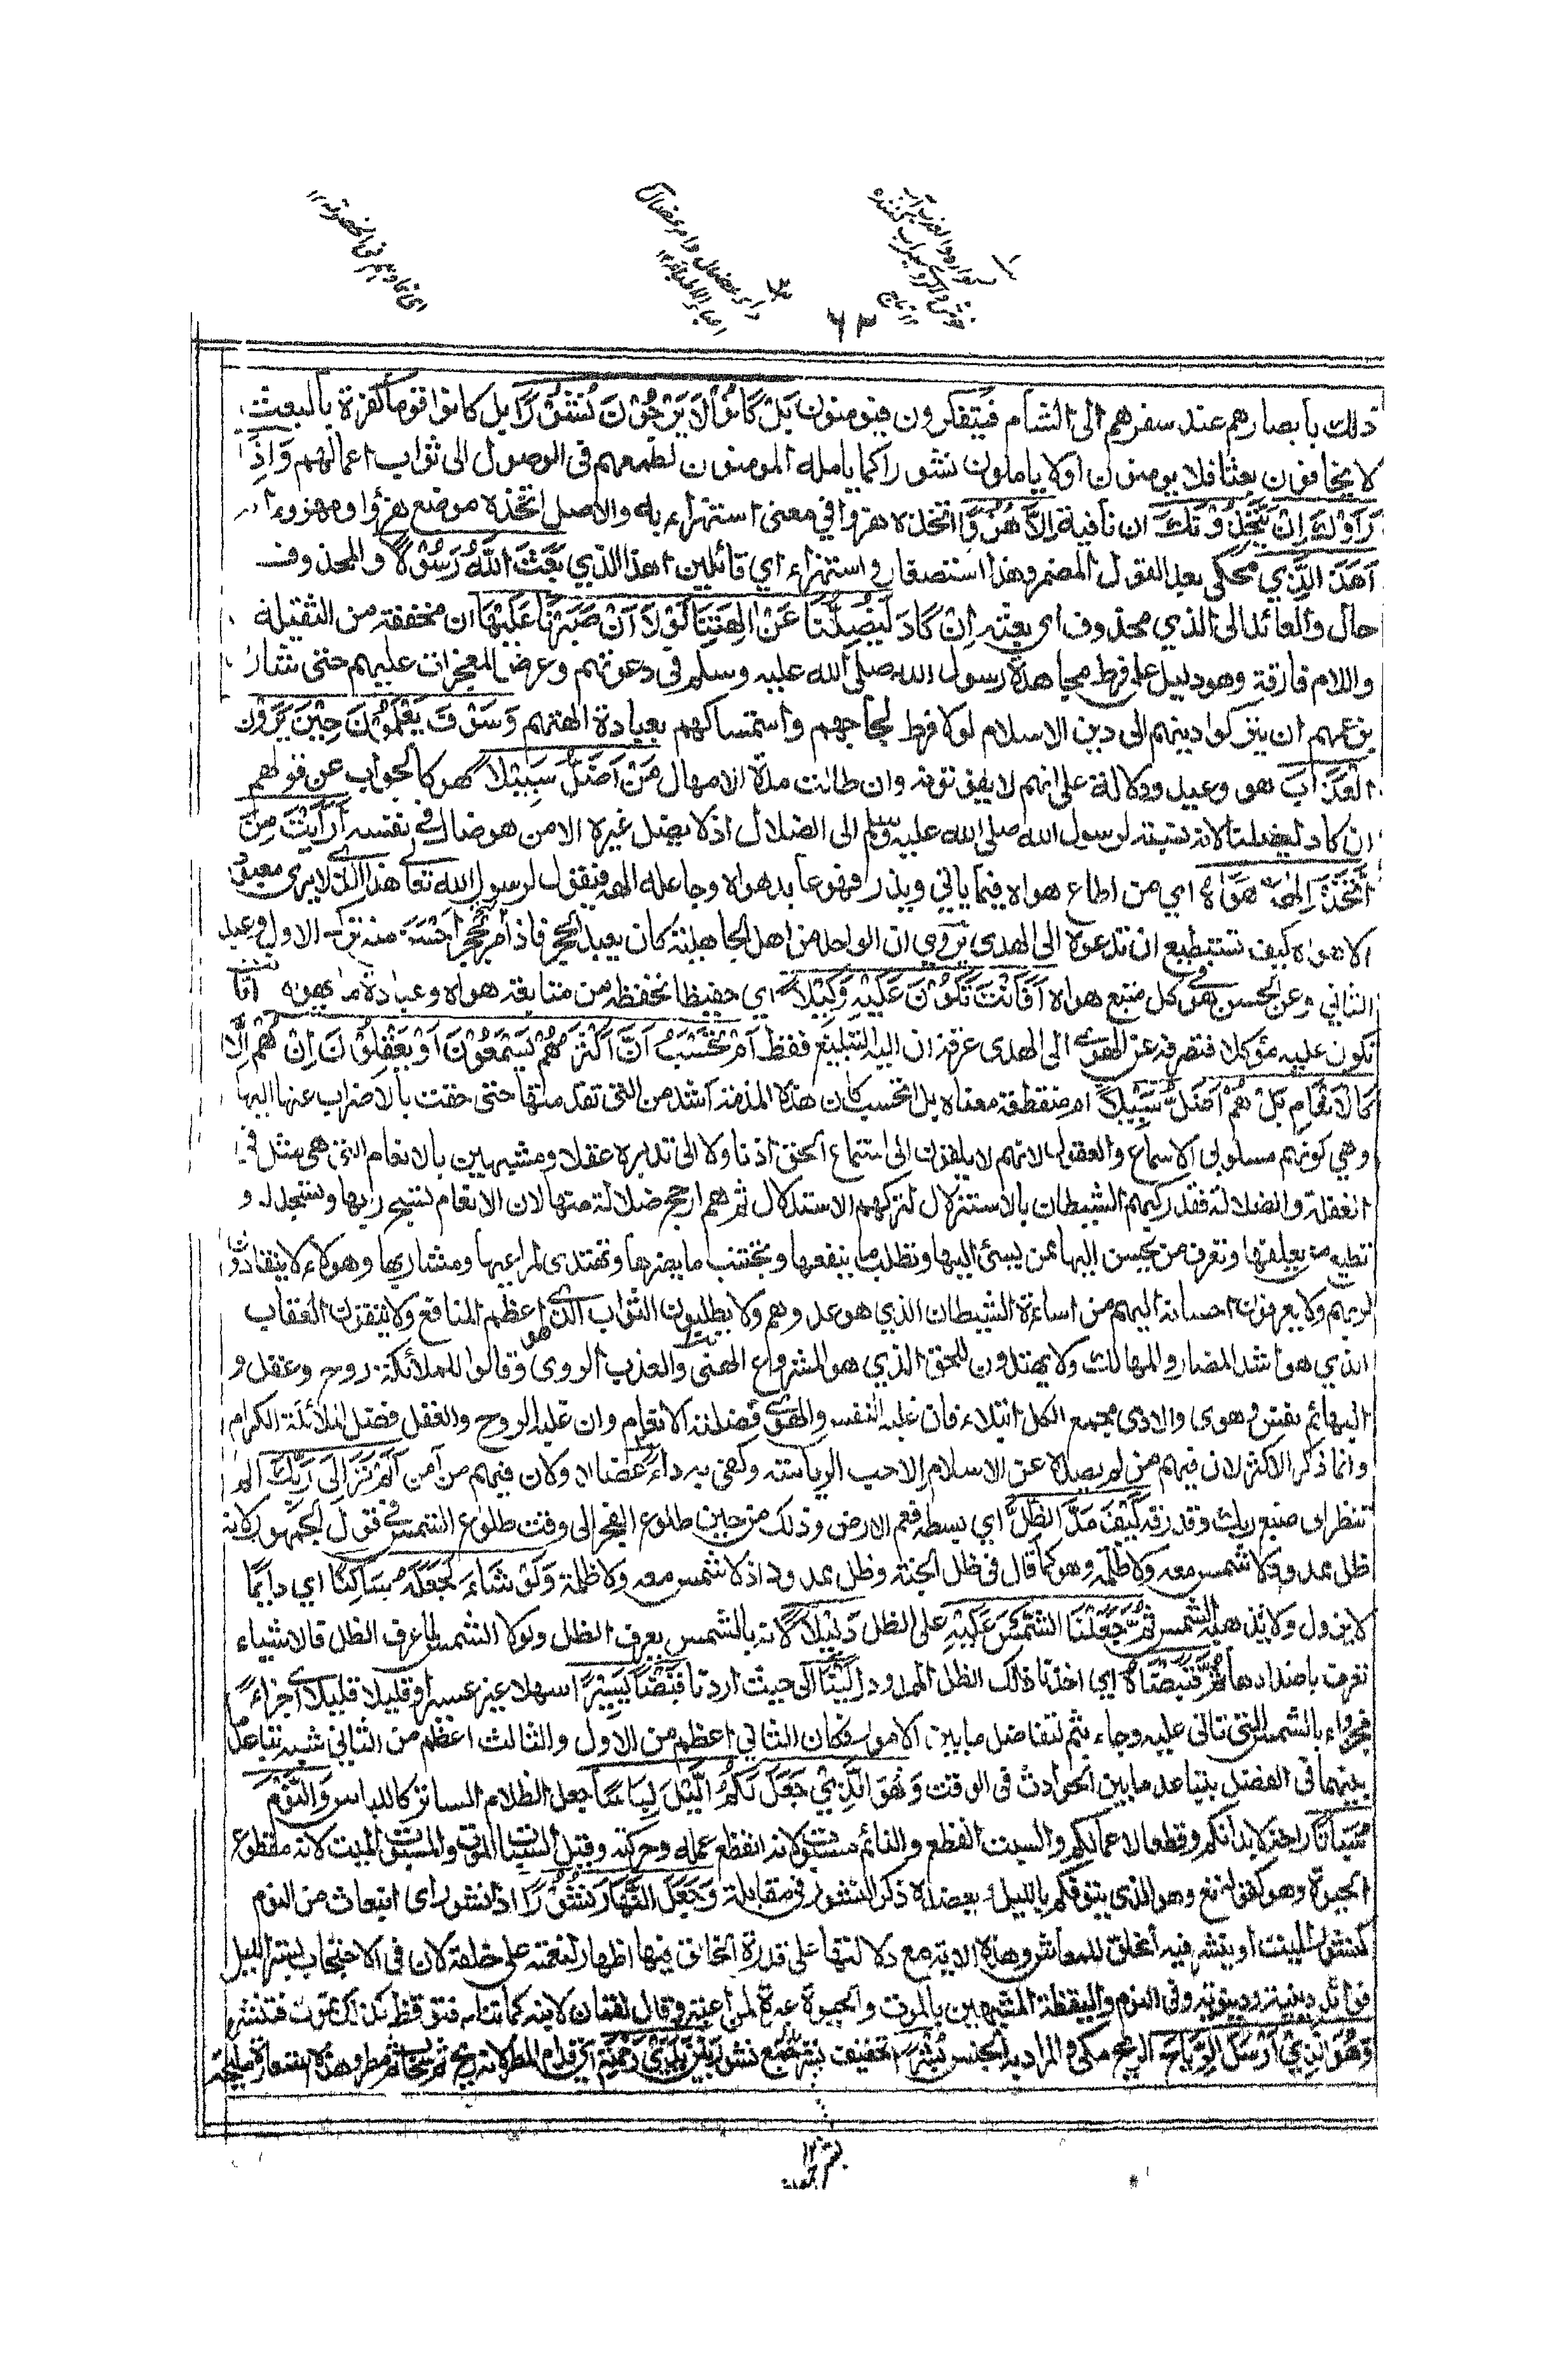 ٦٣
ذلك بأبصارهم عند سفرهم الى الشام فيتفكرون فيؤمنون بَلْ كَانُوْا لَا يَرْجُوْنَ نُشُوْرًا بل كانوا قوما كفرة بالبعث
لا يخافون بعثا فلا يومنون اولا ياملون نشورا كما يامله المومنون لطمعهم في الوصول الى ثواب اعمالهم وَاِذَا
رَاَوْكَ اِنْ يَّتَّخِذُوْنَكَ ان نافية اِلَّا هُزُوًا اتخذه هزوا في معنى استهزاء به والاصل اتخذه موضع هزؤا ومهزوءا به
اَهٰذَا الَّذِيْ محكي بعد القول المضمر وهذا استصغار واستهزاء اي قائلين اهذا الذي بَعَثَ اللّٰهُ رَسُوْلًا والمحذوف
حال والعائد الى الذي محذوف اي بعثه اِنْ كَادَ لَيُضِلُّنَا عَنْ اٰلِهَتِنَا لَوْلَا اَنْ صَبَرْنَا عَلَيْهَا ان مخففة من الثقيلة
واللام فارقة وهو دليل على فرط مجاهدة رسول الله صلى الله عليه وسلم في دعوتهم وعرض المعجزات عليهم حتى شارفوا
بزعمهم ان يتركوا دينهم الى دين الاسلام لولا فرط لجاجهم واستمساكهم بعبادة الهتهم وَسَوْفَ يَعْلَمُوْنَ حِيْنَ يَرَوْنَ
الْعَذَابَ هو وعيد ودلالة على انهم لا يفوتونه وان طالت مدة الامهال مَنْ اَضَلُّ سَبِيْلًا هو كالجواب عن قولهم
ان كاد ليضلنا لانه نسبة لرسول الله صلى الله عليه وسلم الى الضلال اذ لا يضل غيره الا من هو ضال في نفسه اَرَاَيْتَ مَنِ
اتَّخَذَ اِلٰهَهٗ هَوٰىهُ اي من اطاع هواه فيما ياتي ويذر فهو عابد هواه وجاعله الهه فيقول لرسول الله تعالى هذا الذي لا يرى معبودا
الا هواه كيف تستطيع ان تدعوه الى الهدى يروي ان الواحد من اهل الجاهلية كان يعبد الحجر فاذا مر بحجر احسن منه ترك الاول وعبد
الثاني وعن الحسن هو في كل متبع هواه اَفَاَنْتَ تَكُوْنُ عَلَيْهِ وَكِيْلًا اي حفيظا تحفظه من متابعة هواه وعبادة ما يهواه افانت
تكون عليه مؤكلا فتصرفه عن الهوى الى الهدى عرفه ان اليه التبليغ فقط اَمْ تَحْسَبُ اَنَّ اَكْثَرَهُمْ يَسْمَعُوْنَ اَوْ يَعْقِلُوْنَ اِنْ هُمْ اِلَّا
كَالْاَنْعَامِ بَلْ هُمْ اَضَلُّ سَبِيْلًا ام منقطعة معناه بل اتحسب كان هذه المذمة اشد من التي تقدمتها حتى حقت بالاضراب عنها اليها
وهي كونهم مسلوبي الاسماع والعقول لانهم لا يلقون الى استماع الحق اذنا ولا الى تدبره عقلا ومشبهين بالانعام التي هي مثل في
الغفلة والضلالة فقد ركبهم الشيطان بالاستزلال لتركهم الاستدلال ثم هم ارجح ضلالة منها لان الانعام تسبح ربها وتسجد له و
تطيع من يعلفها وتعرف من يحسن اليها ممن يسئ اليها وتطلب ما ينفعها وتجتنب ما يضرها وتهتدي لمراعيها ومشاربها وهؤلاء لا ينقادون
لربهم ولا يعرفون احسانه اليهم من اساءة الشيطان الذي هو عدوهم ولا يطلبون الثواب الذي هو اعظم المنافع ولا يتقون العقاب
الذي هو اشد المضار والمهالك ولا يهتدون للحق الذي هو المشرع الهني والعذب الروي وقالوا للملائكة روح وعقل و
البهائم نفس وهوى والادمي مجمع الكل ابتلاء فان غلبه النفس والهوى فضلته الانعام وان غلبه الروح والعقل فضل الملائكة الكرام
وانما ذكر الاكثر لان فيهم من لم يصده عن الاسلام الا حب الرياسة وكفى به داء عضالا ولان فيهم من امن اَلَمْ تَرَ اِلٰى رَبِّكَ الم
تنظر الى صنع ربك وقدرته كَيْفَ مَدَّ الظِّلَّ اي بسطه فعم الارض وذلك من حين طلوع الفجر الى وقت طلوع الشمس في قول الجمهور لانه
ظل ممدود لا شمس معه ولا ظلمة وهو كما قال في ظل الجنة وظل ممدود اذ لا شمس معه ولا ظلمة وَلَوْ شَاءَ لَجَعَلَهٗ سَاكِنًا اي دائما
لا يزول ولا يذهبه الشمس ثُمَّ جَعَلْنَا الشَّمْسَ عَلَيْهِ على الظل دَلِيْلًا لانه بالشمس يعرف الظل ولولا الشمس لما عرف الظل فالاشياء
تعرف باضدادها ثُمَّ قَبَضْنَاهُ اي اخذنا ذلك الظل الممدود اِلَيْنَا الى حيث اردنا قَبْضًا يَّسِيْرًا سهلا غير عسير او قليلا قليلا اي جزاء
فجزاء بالشمس التي تاتي عليه وجاء بثم لتفاضل ما بين الامور فكان الثاني اعظم من الاول والثالث اعظم من الثاني شبه تباعد ما
بينهما في الفضل بتباعد ما بين الحوادث في الوقت وَهُوَ الَّذِيْ جَعَلَ لَكُمُ الَّيْلَ لِبَاسًا جعل الظلام الساتر كاللباس وَّالنَّوْمَ
سُبَاتًا راحة لابدانكم وقطعا لاعمالكم والسبت القطع والنائم مسبوت لانه انقطع عمله وحركته وقيل السبات الموت والمسبوت الميت لانه مقطوع
الحيوة وهو كقوله تع وهو الذي يتوفكم بالليل يعضده ذكر النشور في مقابلة وَجَعَلَ النَّهَارَ نُشُوْرًا اذ النشور اي انبعاث من النوم
كنشور الميت او ينشر فيه الخلق للمعاش وهذه الاية مع دلالتها على قدرة الخالق فيها اظهار لنعمته على خلقه لان في الاحتجاب بستر الليل
فوائد دينية ودنيوية وفي النوم واليقظة المشبهين بالموت والحيوة عبرة لمن اعتبر وقال لقمان لابنه كما تنام فتوقظ كذلك تموت فتنشر
وَهُوَ الَّذِيْ اَرْسَلَ الرِّيَاحَ الريح مكي والمراد به الجنس بُشْرًا تخفيف بشر جمع بشور بَيْنَ يَدَيْ رَحْمَتِهٖ اي قدام المطر لانه ريح ثم سحاب ثم مطر وهذه استعارة مليحة